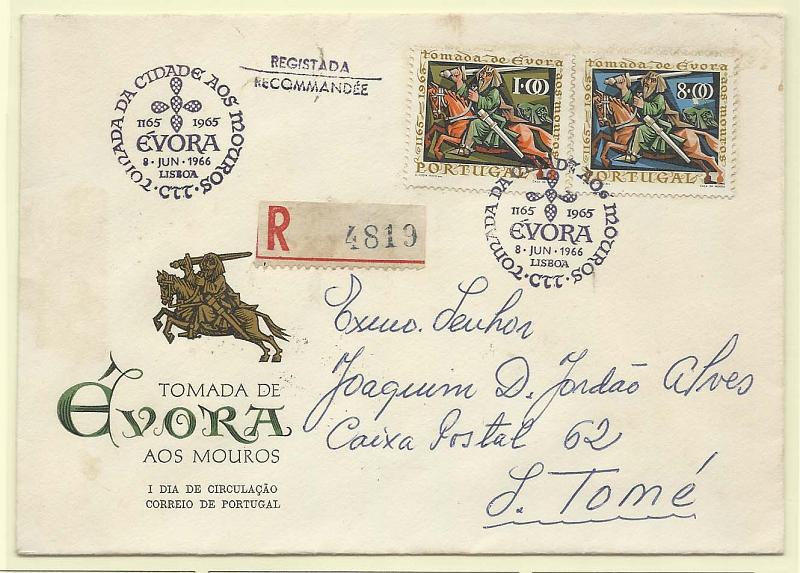 TOMADA DA CIDADE AOS MOUROS
1165 1965
ÉVORA
8 · JUN · 1966
LISBOA
· CTT ·
REGISTADA
RECOMMANDÉE
tomada de Évora
1165-1965
aos mouros
1$00
PORTUGAL
tomada de Évora
1165-1965
aos mouros
8$00
PORTUGAL
TOMADA DA CIDADE AOS MOUROS
1165 1965
ÉVORA
8 · JUN · 1966
LISBOA
· CTT ·
R 4819
Exmo. Senhor
Joaquim D. Jordão Alves
Caixa Postal 62
S. Tomé
TOMADA DE
ÉVORA
AOS MOUROS
I DIA DE CIRCULAÇÃO
CORREIO DE PORTUGAL